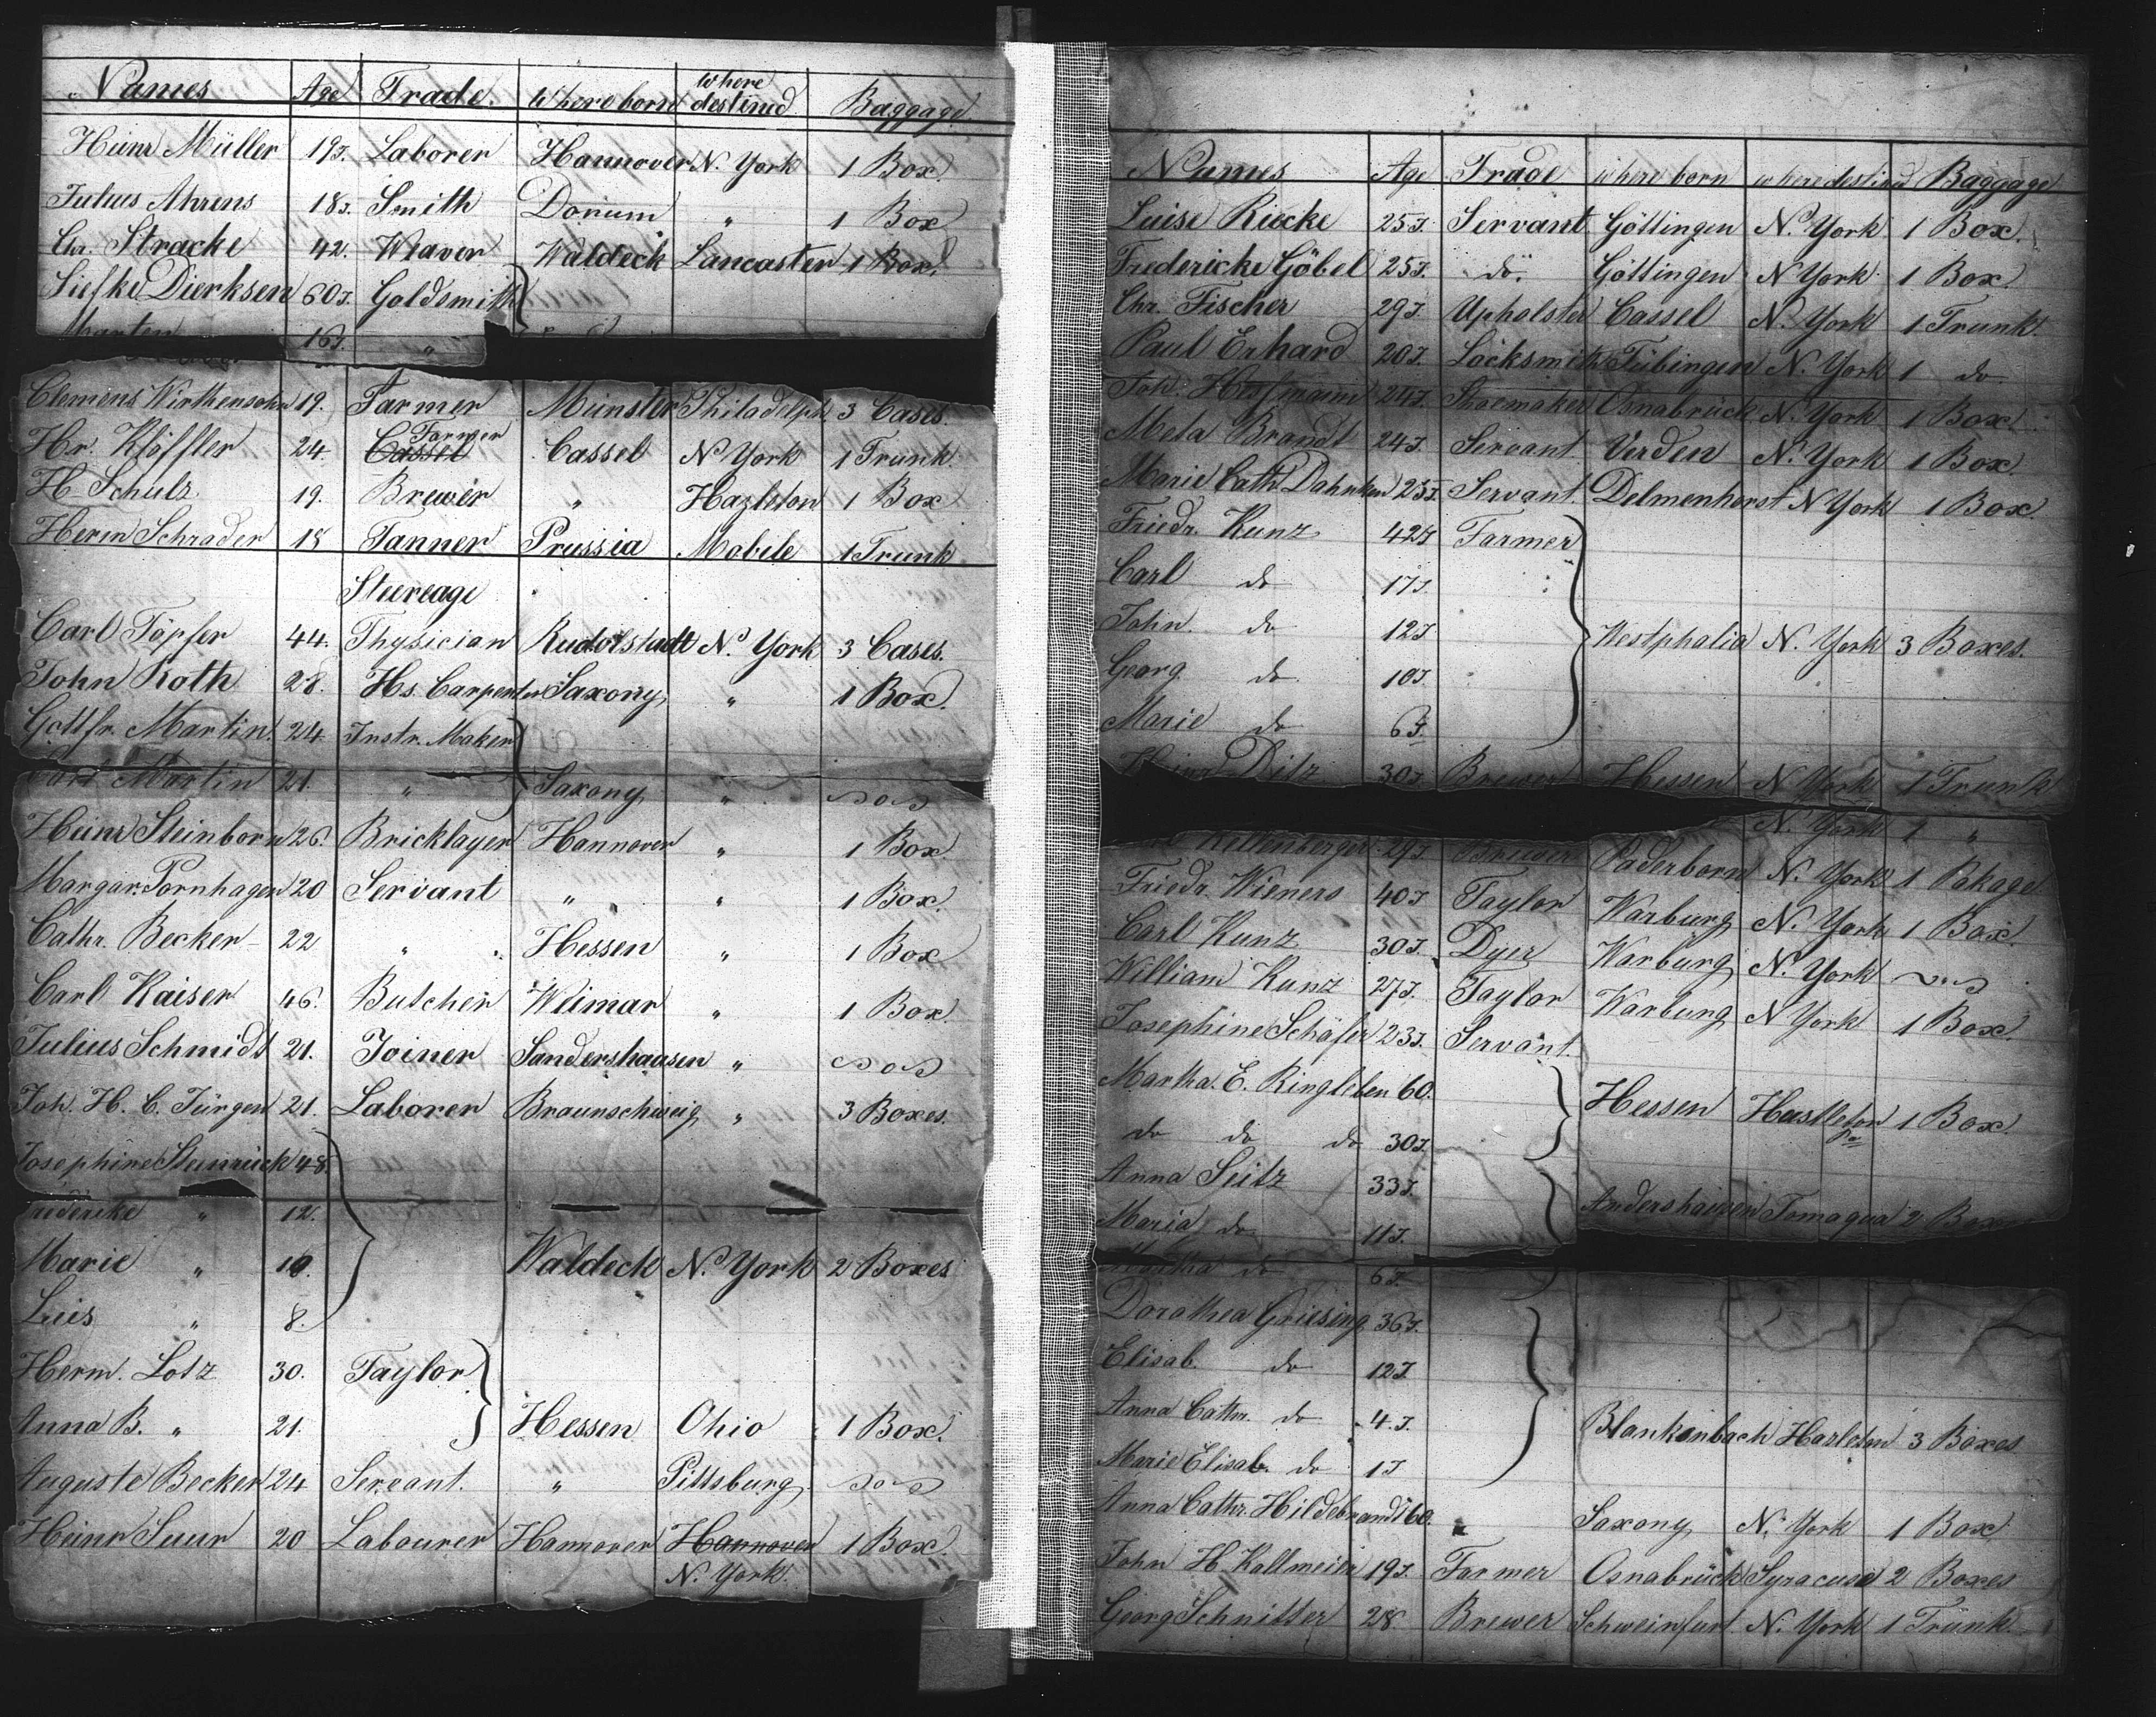 Names Age Trade. Where born where destined Baggage.
Heinr Müller 19J. Laborer Hannover N. York 1 Box.
Julius Ahrens 18J. Smith Dorum " 1 Box
Chr. Stracke 42. Weaver Waldeck Lancaster 1 Box.
Siefke Dierksen 60J. Goldsmith
Marten 16J. "
Clemens Wirthensohn 19. Farmer Münster Philadelph. 3 Cases.
Hr. Klöffler 24. Cassel Farmer Cassel N. York 1 Trunk.
H. Schulz 19. Brewer " Hazleton 1 Box
Herm Schrader 18 Tanner Prussia Mobile 1 Trunk
Steereage
Carl Töpfer 44. Physician Rudolstadt N. York 3 Cases.
John Roth 28. Hs. Carpenter Saxony " 1 Box.
Gottfr. Martin. 24. Instr. Maker
Carl Martin 21. " Saxony "
Heinr Steinborn 26. Bricklayer Hannover " 1 Box
Margar. Pornhagen 20 Servant " " 1 Box.
Cathr. Becker 22 " Hessen " 1 Box
Carl Kaiser 46. Butcher Weimar " 1 Box.
Julius Schmidt 21. Joiner Sandershausen "
Joh. H. C. Jürgen 21. Laborer Braunschweig " 3 Boxes.
Josephine Steinrück 48.
Frederike " 12.
Marie " 10. Waldeck N. York 2 Boxes
Luis " 8.
Herm. Lotz 30. Taylor
Anna B. " 21. Hessen Ohio 1 Box.
Auguste Becker 24 Servant. " Pittsburg
Heinr Suur 20 Labourer Hannover Hannover 1 Box.
N. York.
Names Age Trade where born where destined Baggage
Luise Riecke 25J. Servant. Göttingen N. York 1 Box.
Fredericke Göbel 25J. do. Göttingen N York 1 Box.
Chr. Fischer 29J. Upholster Cassel N. York 1 Trunk.
Paul Erhard 20J. Locksmith Tübingen N. York 1 do
Joh. 24J. Shoemaker Osnabrück N. York 1 Box.
Meta Brandt 24J. Servant Verden N. York 1 Box.
Marie Cath Dahnken 25J. Servant. Delmenhorst N York 1 Box.
Friedr. Kunz 42J Farmer
Carl do 17J.
John. do 12J Westphalia N. York 3 Boxes.
Georg. do 10J
Marie do 6J.
Heinr Ditz 30J. Brewer Hessen N York 1 Trunk
Kellenberger 29J. Brewer N. York 1 "
Friedr. Wieners 40J Taylor Paderborn N. York 1 Pakage
Carl Kunz 30J. Dyer Warburg N. York 1 Box.
William Kunz 27J. Taylor Warburg N. York
Josephine Schäfer 23J. Servant. Warburg N York 1 Box.
Martha. E. Ringleben 60.
do do do 30J. Hessen Hastleton Pa 1 Box.
Anna Seitz 33J.
Maria do 11J. Andershausen Tomaqua 2 Boxes
Martha do 6J.
Dorothea Griesing 36J.
Elisab. do 12J
Anna Cathr. do 4J. Blankenbach Harleton 3 Boxes
Marie Elisab. do 1J
Anna Cathr. Hildebrandt 60. " Saxony N. York 1 Box
John H. Kollmeier 19J. Farmer Osnabrück Syracuse 2 Boxes
Georg Schnitter 28. Brewer Schweinfurt N. York 1 Trunk.